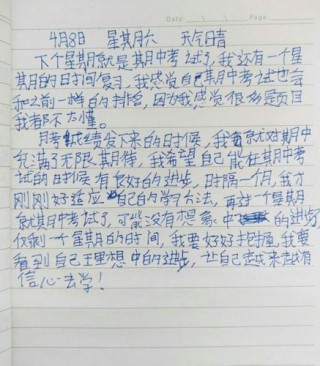 Date: Page:
4月8日 星期六 天气晴
下个星期就是其月中考试了,我还有一个星
其月的日时间复习,我感觉自己其月中考试也会
和之前一样的排名,因为我感觉很多是页目
我者都不太懂。
月考成绩发下来的时候,我就对其月中
充满了无限其月待,我希望自己能在其月中考
试的时候有良好的进步,时隔一个月,我才
刚刚好适应自己的学习方法,再过个星期
就其月中考试了,可能没有想象中的进步
仅剩一个星期的时间,我要好好把握,我要
看到自己理想中的进步,让自己越来越有
信心去学!